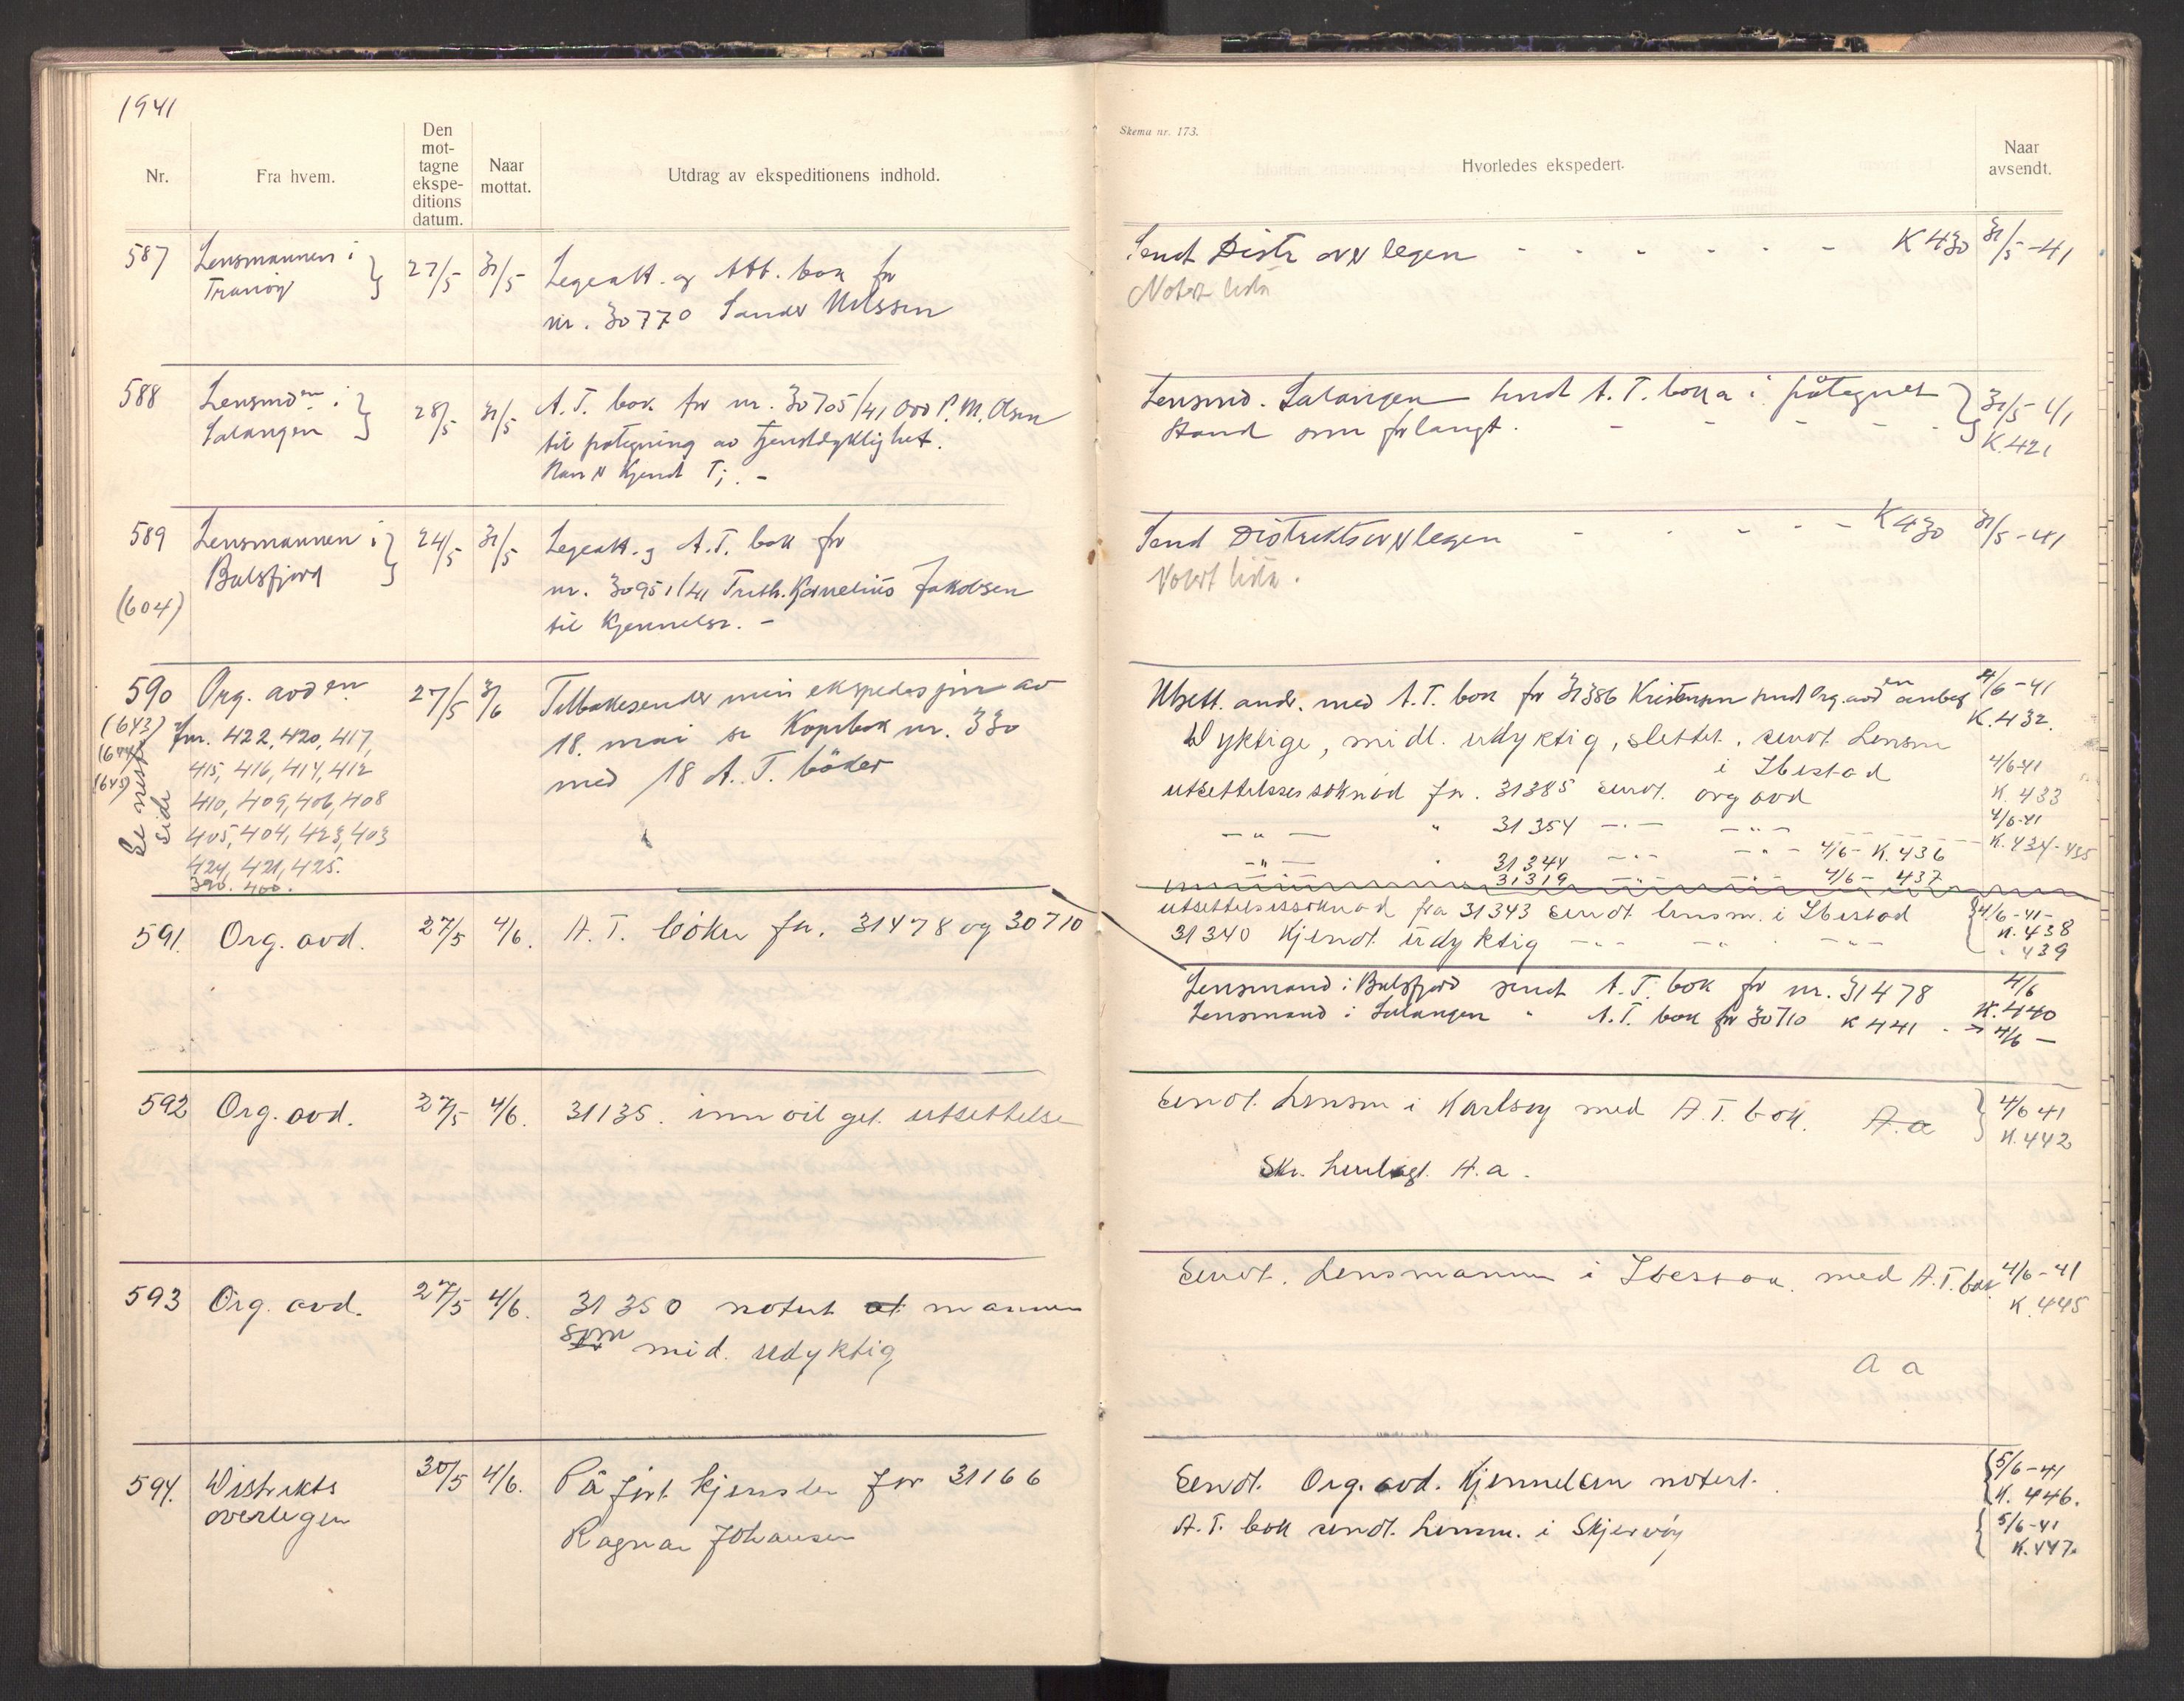 1941
Nr.
Fra hvem.
Den mot-tagne ekspe-ditions datum.
Naar mottat.
Utdrag av ekspeditionens indhold.
587 Lensmannen i Tranøy 27/5 31/5 Legeatt. og Att. bok for
nr. 30770 Sander Nilssen
588 Lensmden i Salangen 28/5 31/5 A.T. bok for nr. 30705/41 Odd P. M. Olsen
til påtegning av tjenstdyktighet.
Han er Kjendt Tj. -
589 Lensmannen i Balsfjord 24/5 31/5 Legeatt. og A.T. bok for
(604) nr. 30951/41 Kornelius Jakobsen
til Kjennelse. -
590 Org. avden 27/5 3/6 Tilbakesender min ekspedisjon av
(643) Jnr. 422, 420, 417, 18. mai se Kopibok nr. 330
(644) 415, 416, 414, 412 med 18 A.T. bøker
(645) 410, 409, 406, 408
405, 404, 423, 403
424, 421, 425.
390. 400.
Se neste side
591. Org. avd. 27/5 4/6. A.T. bøker for. 31478 og 30710
592 Org. avd. 27/5 4/6. 31135. innvilget utsettelse
593 Org. avd. 27/5 4/6. 31350 notert at mannen
som mid. udyktig
594. Distrikts overlegen 30/5 4/6. Påført kjensler for 31166
Ragnar Johansen
Skema nr. 173.
Hvorledes ekspedert.
Naar avsendt.
Sendt Distr ov legen - - - - - - K 430 31/5-41
Notert lista
Lensmd. Salangen sendt A.T. boka i påtegnet 31/5-41
stand som forlangt. - - - - - K.421
Send Distriktsov legen - - - - - K430 31/5-41
Notert lista.
Utsett. and. med A.T. bok for 31386 Kristensen sendt Org. avden 4/6-41
K.432.
Dyktige, midl. udyktig, slettet. sendt Lensm
i Ibestad 4/6-41
K. 433
utsettelsessøknad for. 31385 sendt. org avd
4/6-41
— " — " 31354 —"— —"— K.434-435
— " — " 31344 —"— —"— 4/6- K.436
31319 —"— —"— 4/6- 437
utsettelsessøknad fra 31343 sendt lensm. i Ibestad 4/6-41- K.438
31340 Kjendt udyktig —"— —"— —"— " 439
Lensmand i Balsfjord sendt A.T. bok for nr. 31478 4/6
K.440
Lensmand i Salangen " A.T. bok for 30710 K 441 -> 4/6 -
Sendt. Lensm i Karlsøy med A.T. bok. A.a 4/6 41
K.442
Skr. henlagt. A.a.
Sendt. Lensmannen i Ibestad med A.T. bok 4/6-41
K.445
A a
Sendt. Org. avd. Kjennelsen notert. 5/6-41
K. 446.
A.T. bok sendt. Lensm. i Skjervøy 5/6-41
K.447.